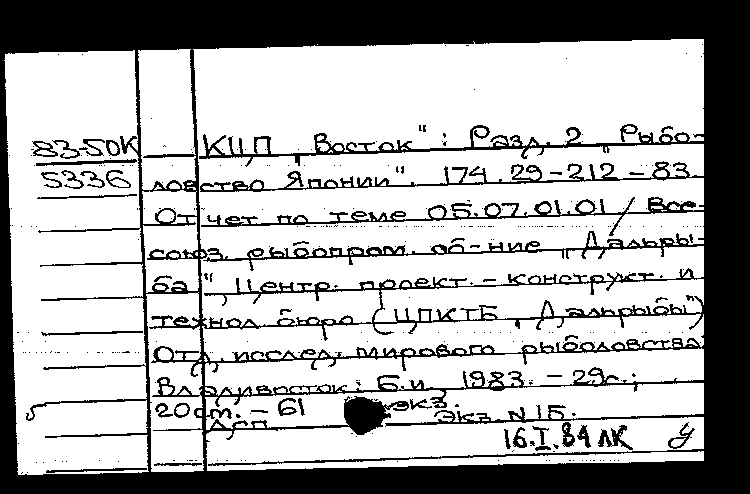 83-50К КЦП „Восток": Разд. 2 „Рыбо-
5336 ловство Японии". 174.29-212-83.
Отчет по теме 05.07.01.01 / Все-
союз. рыбопром. об-ние „Дальры-
ба", Центр. проект.-конструкт. и
технол бюро (ЦПКТБ „Дальрыбы")
Отд. исслед. мирового рыболовства.
Владивосток: Б.и., 1983. - 29с.;
20см. - 61 экз. Экз. N 15.
Дсп.
16.I.84 ЛК